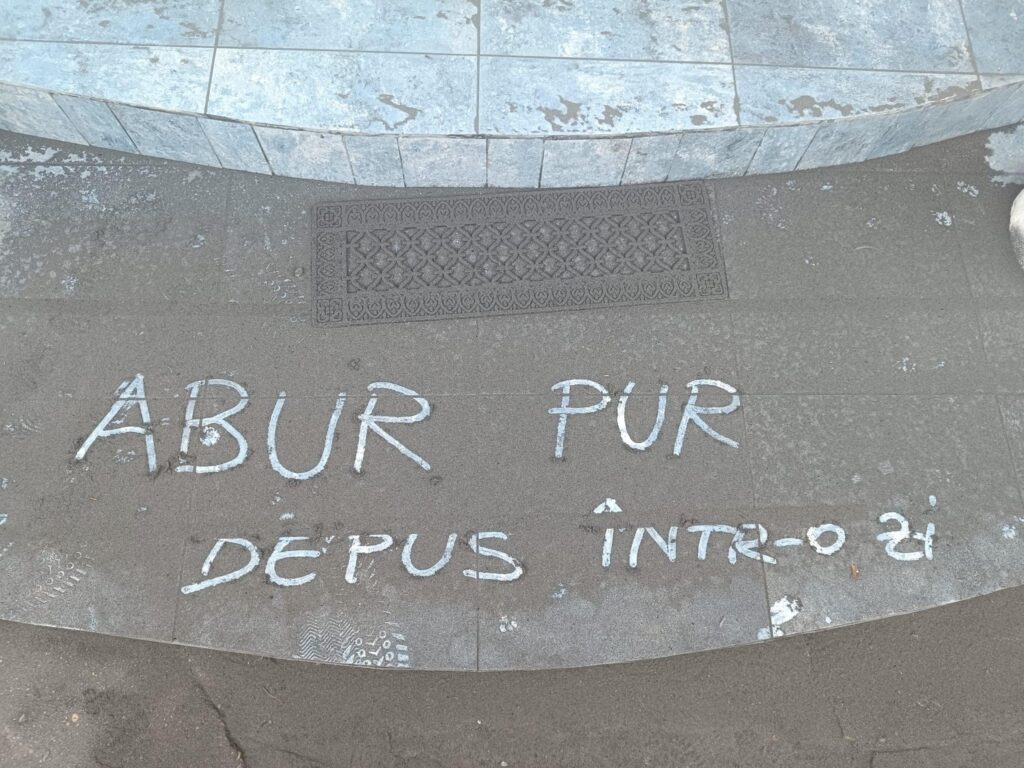 ABUR PUR
DEPUS ÎNTR-O ZI